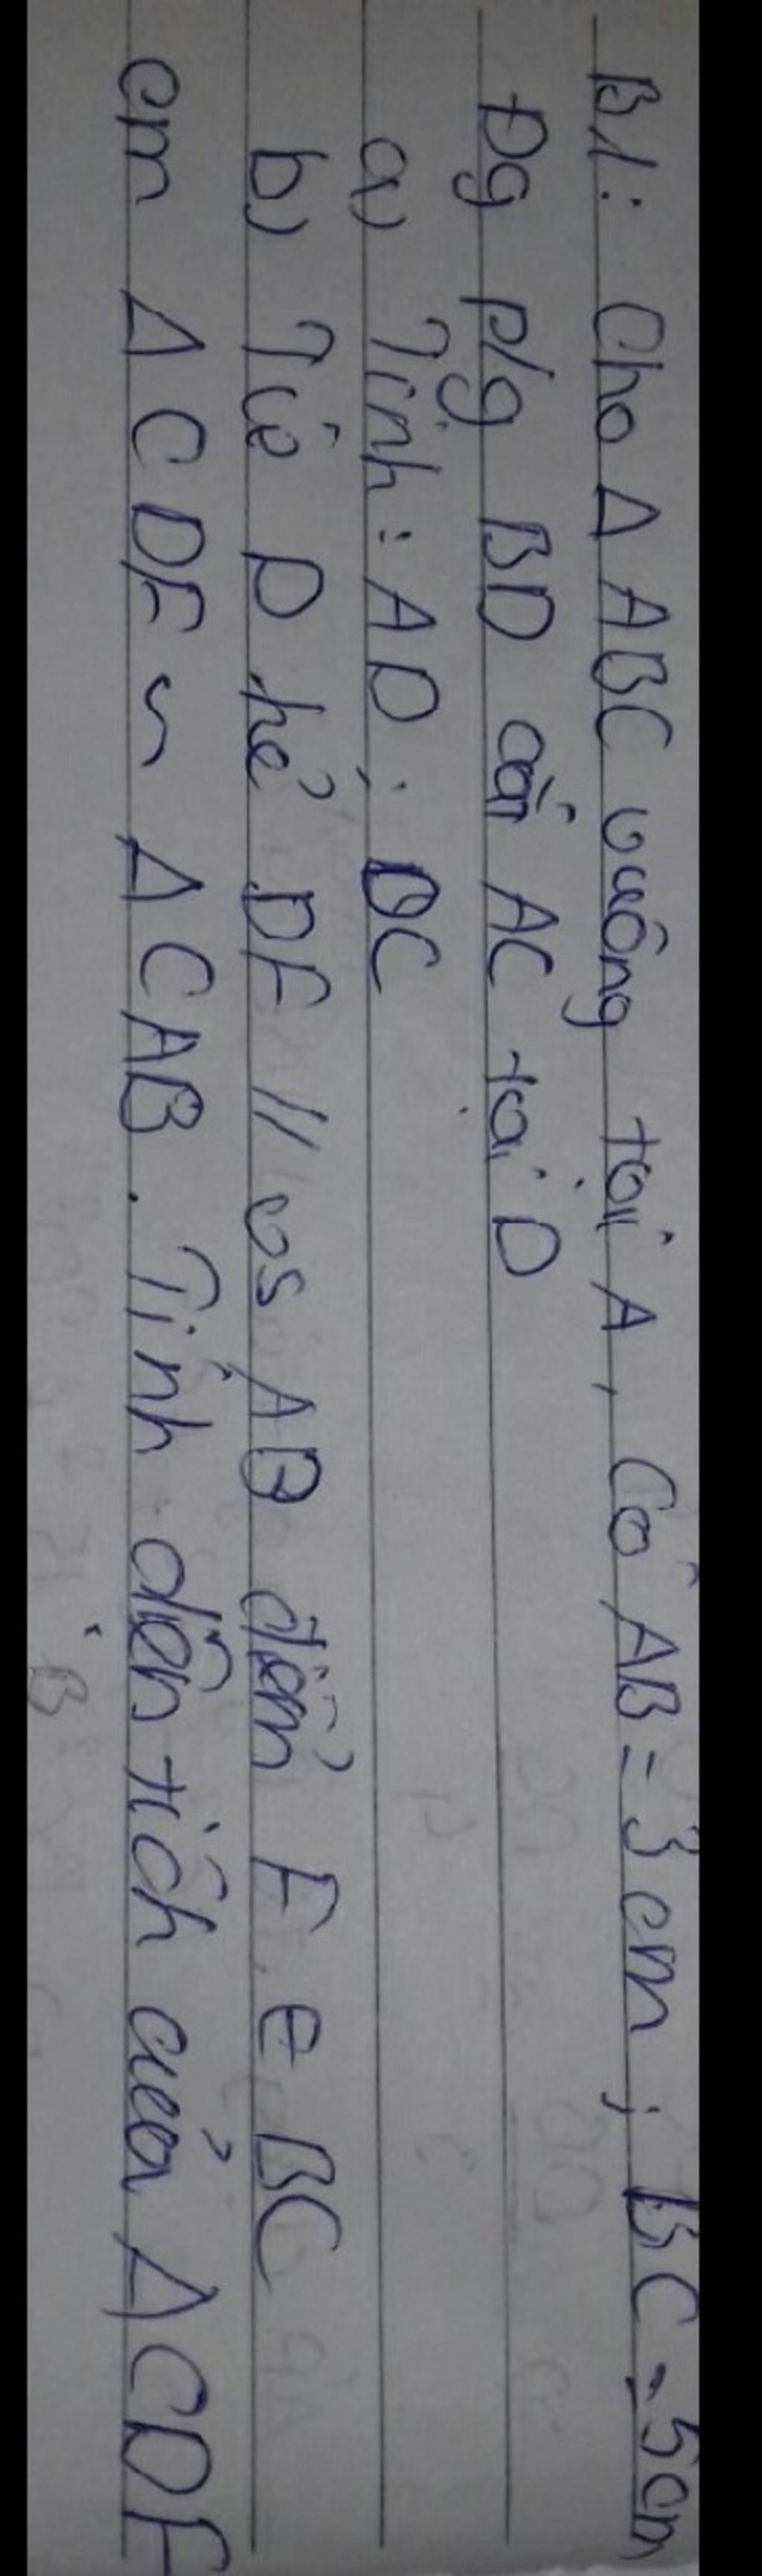 B1: Cho Δ ABC vuông tại A, Có AB = 3 cm ; BC = 5cm
Đg p/g BD cắt AC tại D
a) Tính : AD ; DC
b) Từ D kẻ DE // vs AB điểm E ∈ BC
cm Δ CDE ~ Δ CAB . Tính diện tích của Δ CDE